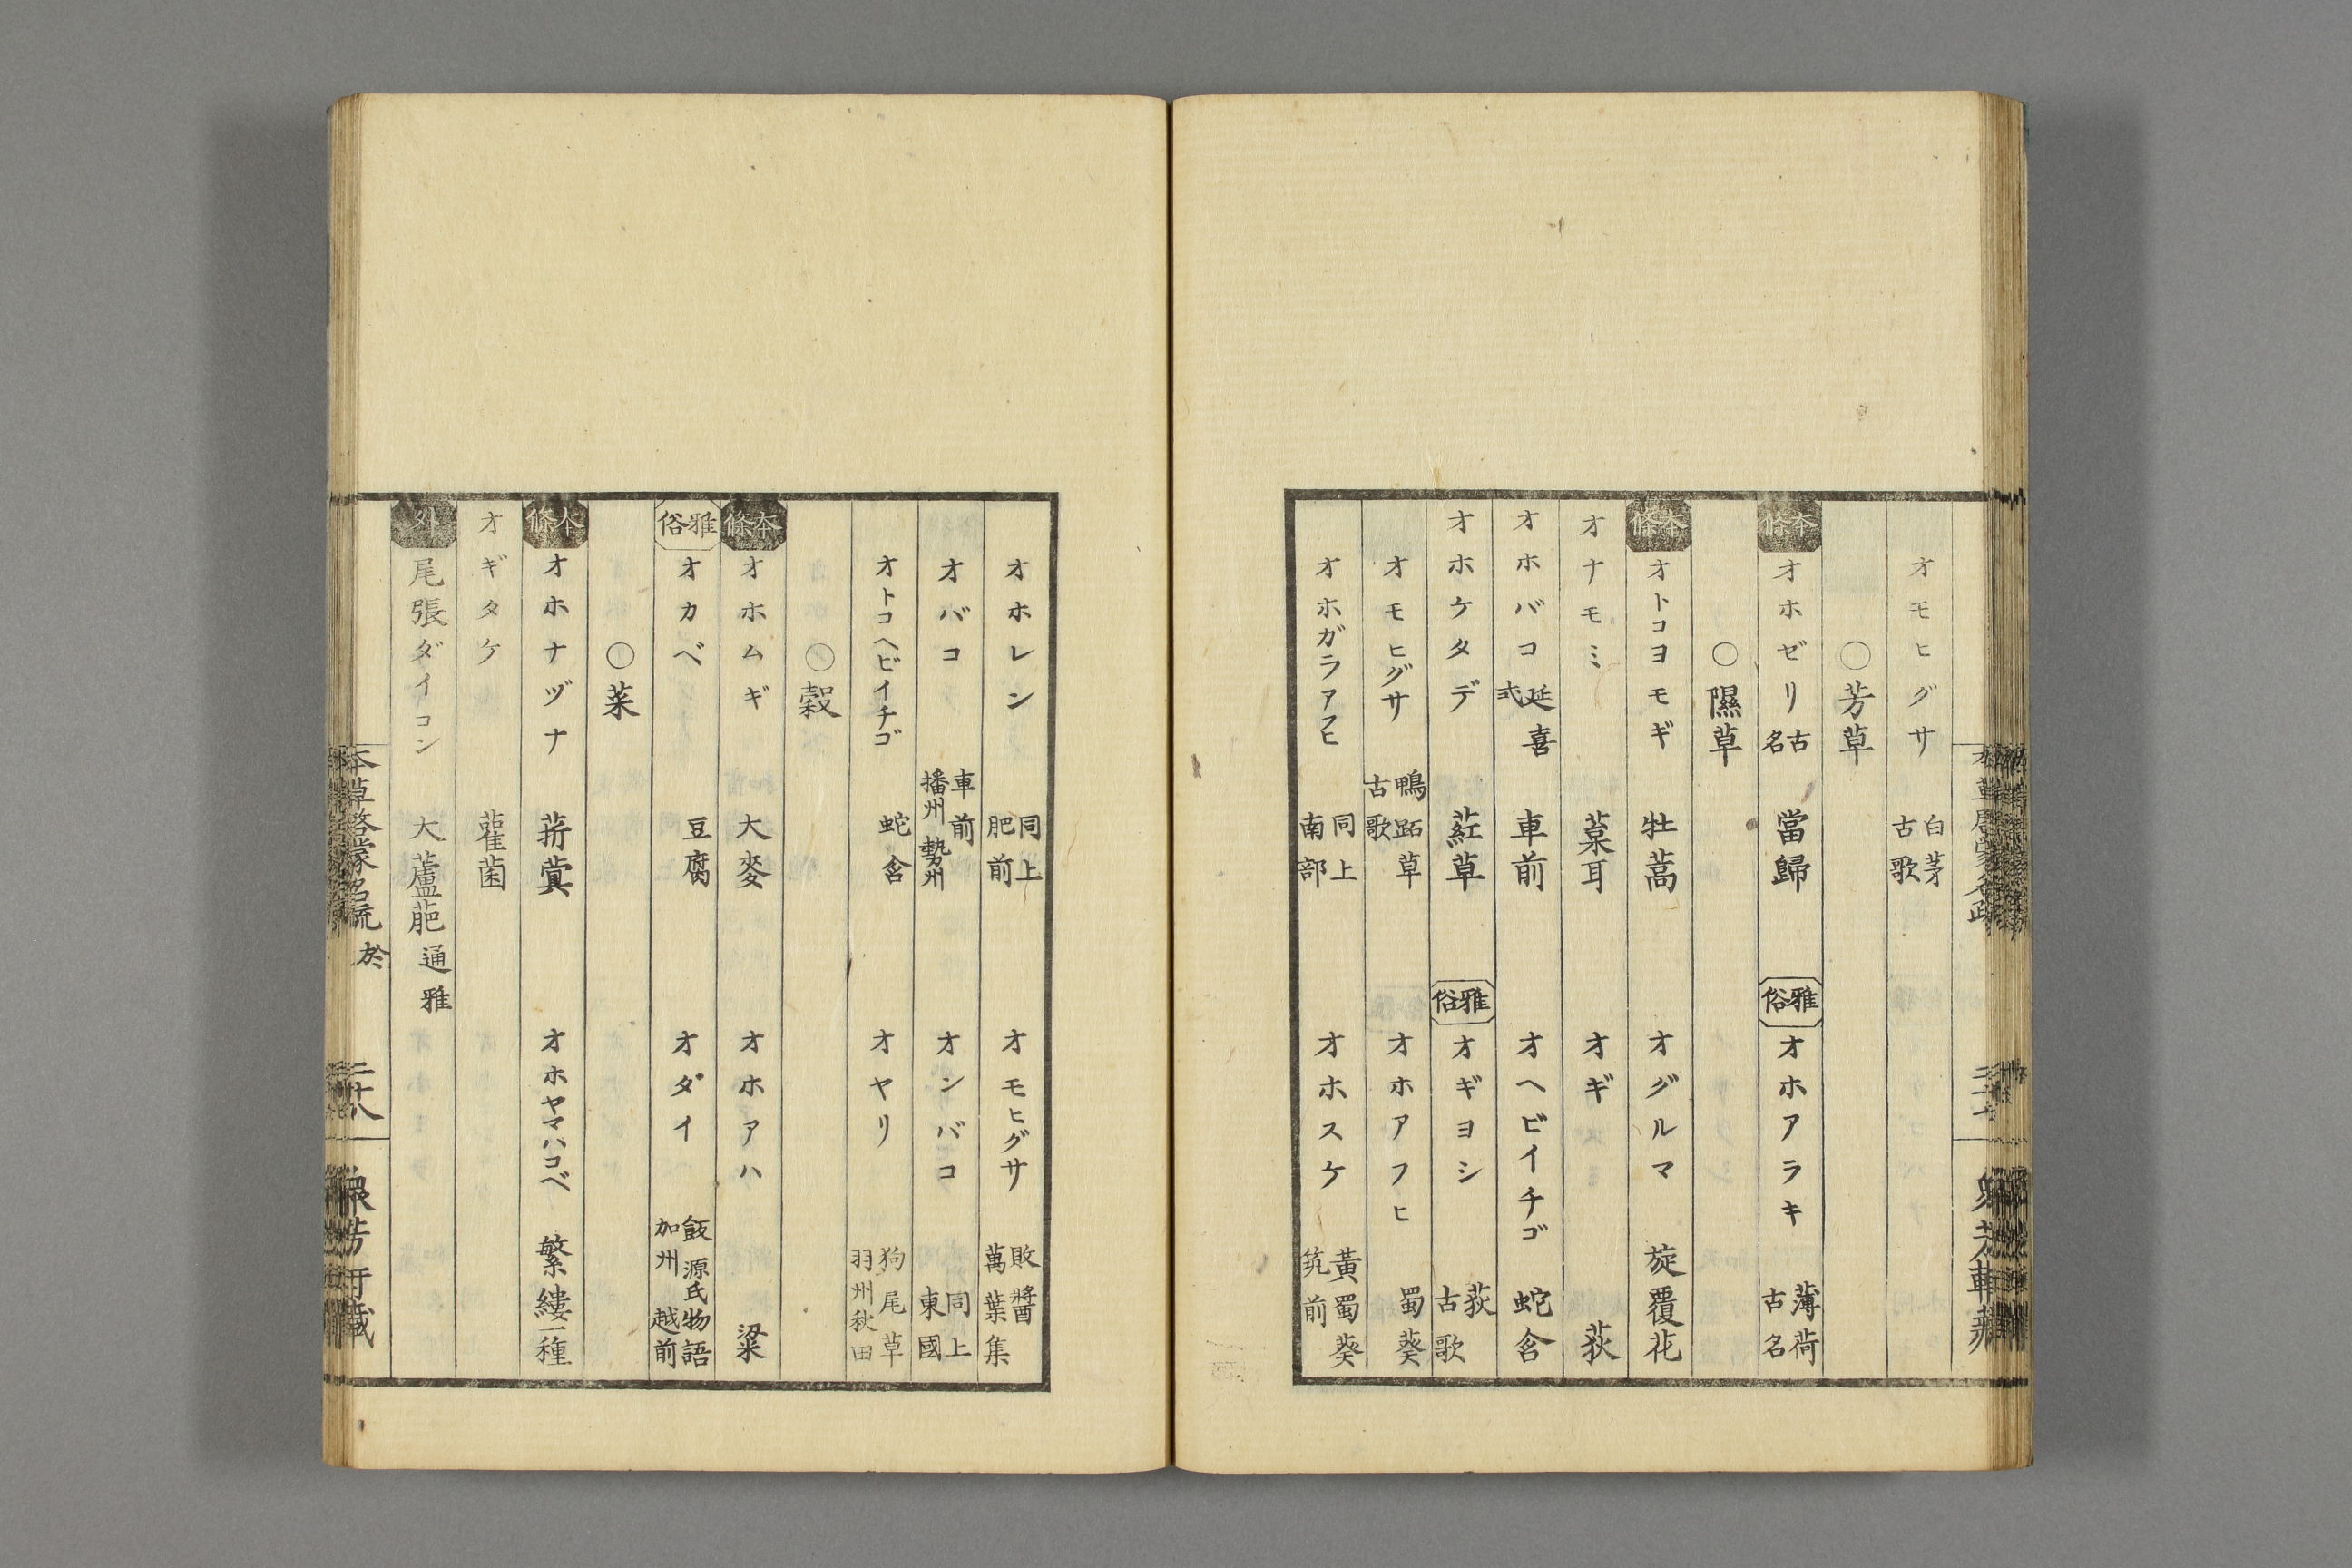 オモヒグサ 白茅 古歌
○芳草
本條 オホゼリ 古名 當歸 雅俗 オホアラキ 薄荷 古名
○隰草
本條 オトコヨモギ 牡蒿 オグルマ 旋覆花
オナモミ 葈耳 オギ 荻
オホバコ 延喜式 車前 オヘビイチゴ 蛇含
オホケタデ 葒草 雅俗 オギヨシ 荻 古歌
オモヒグサ 鴨跖草 古歌 オホアフヒ 蜀葵
オホガラアフヒ 同上 南部 オホスケ 黃蜀葵 筑前
オホレン 同上 肥前 オモヒグサ 敗醬 萬葉集
オバコ 車前 播州 勢州 オンバコ 同上 東國
オトコヘビイチゴ 蛇含 オヤリ 狗尾草 羽州秋田
○穀
本條 オホムギ 大麥 オホアハ 粱
雅俗 オカベ 豆腐 オダイ 飯 源氏物語 加州 越前
○菜
本條 オホナヅナ 菥蓂 オホヤマハコベ 繁縷一種
オギタケ 雚菌
外 尾張ダイコン 大蘆萉 通雅
本草啓蒙名疏 於 二十八 衆芳軒藏